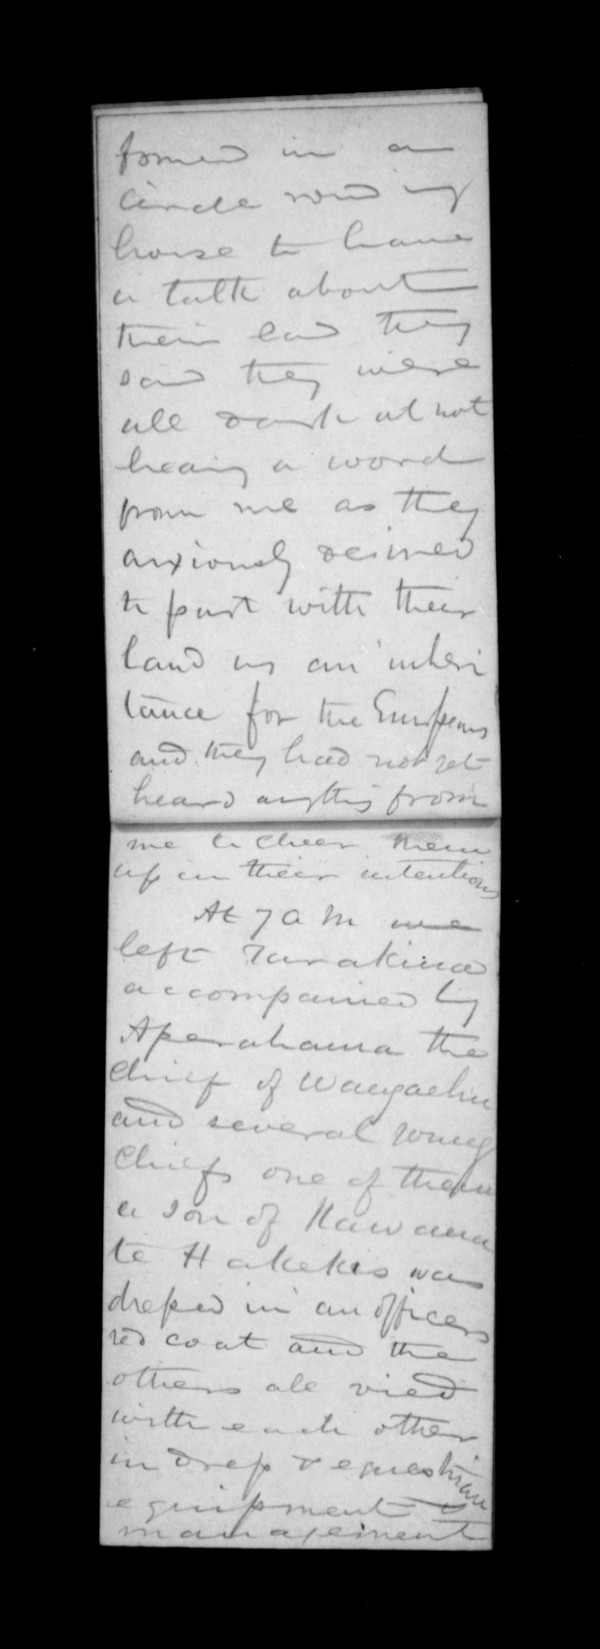 formed in a
circle round my
horse to have
a talk about
their land they
said they were
all dark at not
hearing a word
from me as they
anxiously desired
to part with their
land as an inheri
tance for the Europeans
and they had not yet
heard anything from
me to cheer them
up in their intentions
At 7 A M we
left Turakina
accompanied by
Aperahama the
Chief of Wangaehu
and several young
Chiefs one of them
a son of Hawana
te Hakekes was
dressed in an officers
red coat and the
others all vied
with each other
in dress & equestrian
equipment &
management